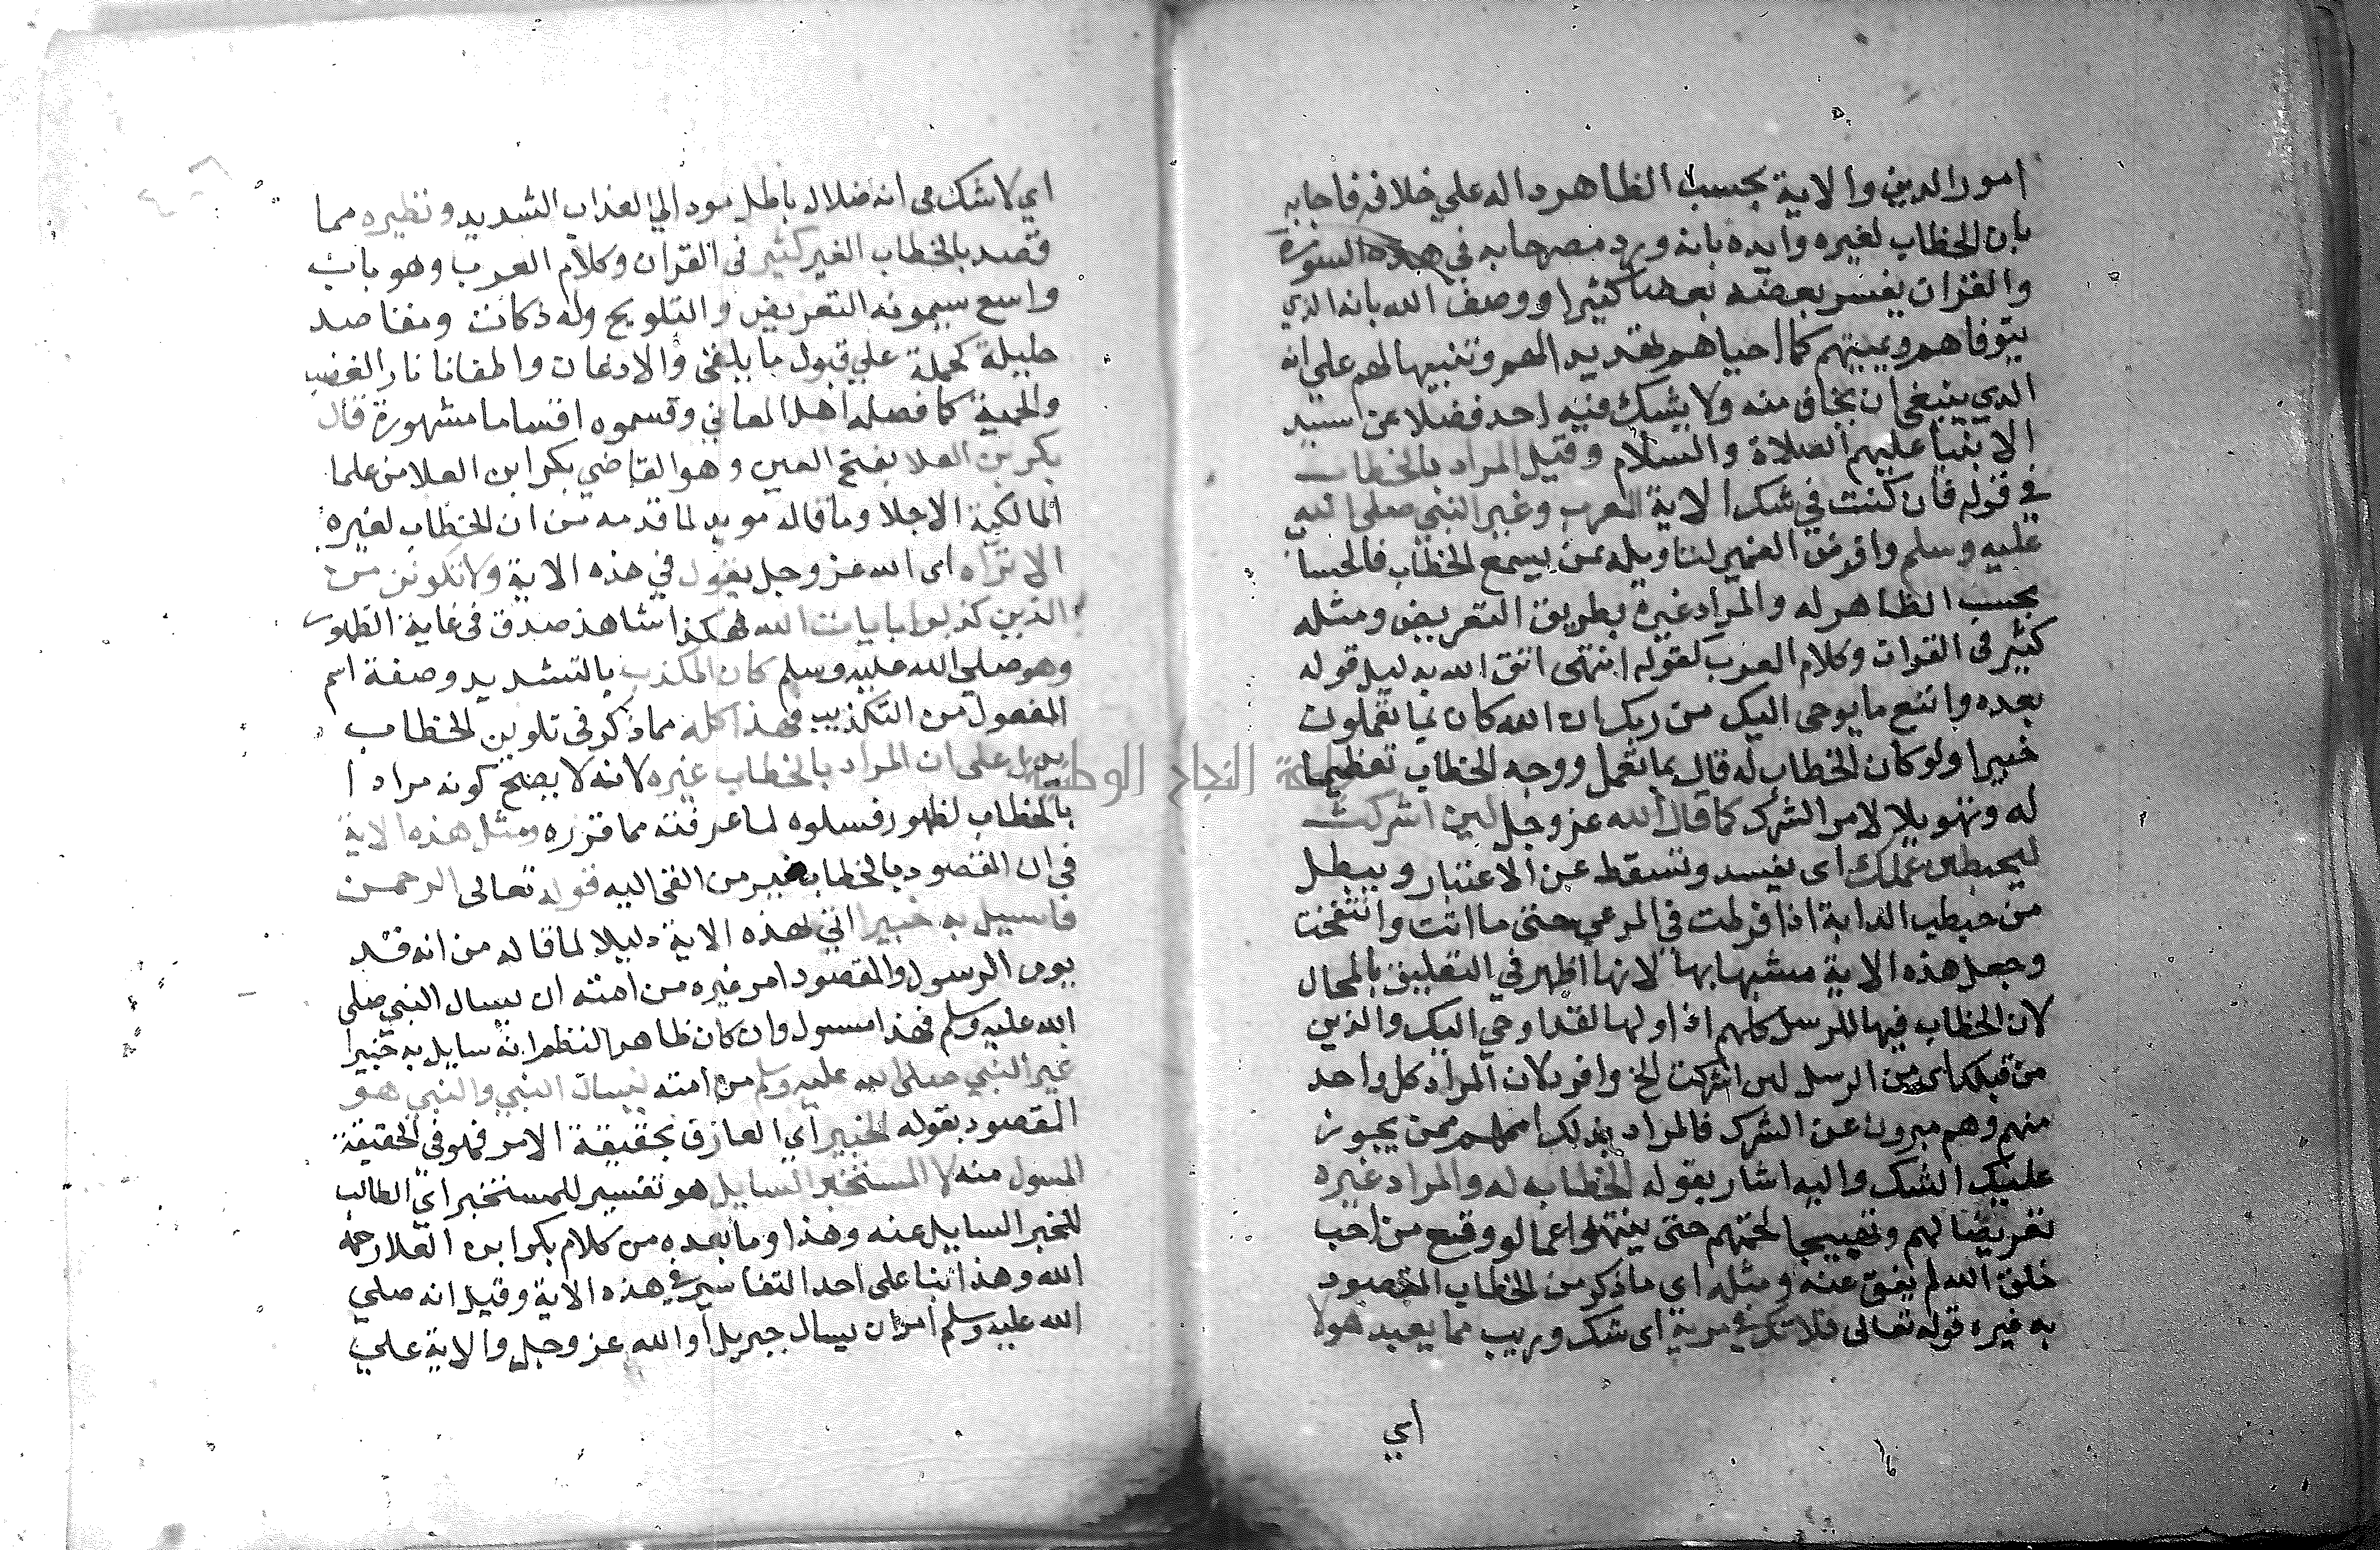 امور الدين والاية بحسب الظاهر داله علي خلافه فاجابه
بان الخطاب لغيره وايده بانه ورد مصرحا به في هذه السورة
والقران يفسر بعضه بعضا كثيرا ووصف الله بانه الذي
يتوفاهم ويميتهم كما احياهم تهديد الهم وتنبيها لهم علي انه
الذي ينبغي ان يخاف منه ولا يشك فيه احد فضلا عن سيد
الانبيا عليهم الصلاة والسلام وقيل المراد بالخطاب
في قوله فان كنت في شك الاية العرب وغير النبي صلي الله
عليه وسلم وافرد الضمير لتاويله بمن يسمع الخطاب فالخطا
بحسب الظاهر له والمراد غيره بطريق التعريض ومثله
كثير في القران وكلام العرب كقوله انتهى اتق الله بدليل قوله
بعده واتبع ما يوحى اليك من ربك ان الله كان بما تعملون
خبيرا ولو كان الخطاب له قال بما تعمل ووجه الخطاب تعظيما
له وتهويلا لامر الشرك كما قال الله عز وجل لين اشركت
ليحبطن عملك اى يفسد وتسقط عن الاعتبار ويبطل
من حبطت الدابة اذا فرطت في المرعي حتى ماتت وانتفخت
وجعل هذه الاية مشبها بها لانها اظهر في التعليق بالمحال
لان الخطاب فيها للرسل كلهم اذ اولها لقد اوحي اليك والذين
من قبلك اى من الرسل لين اشركت الخ وافرد لان المراد كل واحد
منهم وهم مبرون عن الشرك فالمراد بذلك اممهم ممن يجوز
عليه الشك واليه اشار بقوله الخطاب له والمراد غيره
تعريضا لهم وتهييجا لحميتهم حتى ينتهوا عما لو وقع من احب
خلق الله لم يعف عنه ومثله اى ما ذكر من الخطاب المقصود
به غيره قوله تعالى فلا تك في مرية اى شك وريب مما يعبد هولا
اي
اي لا شك في انه ضلال باطل مود الي العذاب الشديد ونظيره مما
قصد بالخطاب الغير كثير في القران وكلام العرب وهو باب
واسع يسمونه التعريض والتلويح وله نكات ومقاصد
جليلة كحمله علي قبول ما يلقى والاذعان واطفانا نار الغضب
والحمية كما فصله اهل المعاني وقسموه اقساما مشهورة قال
بكر بن العلا بفتح العين وهو القاضي بكر ابن العلا من علما
المالكية الاجلا وما قاله مويد لما قدمه من ان الخطاب لغيره
الا تراه اى الله عز وجل يقول في هذه الاية ولا تكونن من
الذين كذبوا بايات الله فهذا شاهد صدق في غاية الظهور
وهو صلي الله عليه وسلم كان المكذب بالتشديد وصفة اسم
المفعول من التكذيب فهذا كله مما ذكر في تلوين الخطاب
يدل على ان المراد بالخطاب غيره لانه لا يصح كونه مرادا
بالخطاب لظهور فسلوه لما عرفته مما قرره ومثل هذه الاية
في ان المقصود بالخطاب غير من القى اليه قوله تعالى الرحمن
فاسيل به خبيرا اتي بهذه الاية دليلا لما قاله من انه قد
يومر الرسول والمقصود امر غيره من امته ان يسال النبي صلي
الله عليه وسلم فهذا مسول وان كان ظاهر النظم انه سايل به خبيرا
غير النبي صلي الله عليه وسلم من امته ليسال النبي والنبي هو
المقصود بقوله الخبير اي العارف بحقيقة الامر فهو في الحقيقة
المسول منه لا المستخبر السايل هو تفسير للمستخبر اي الطالب
للخبر السايل عنه وهذا وما بعده من كلام بكر ابن العلا رحمه
الله وهذا بنا على احد التفاسير في هذه الاية وقيل انه صلي
الله عليه وسلم امر ان يسال جبريل او الله عز وجل والاية علي